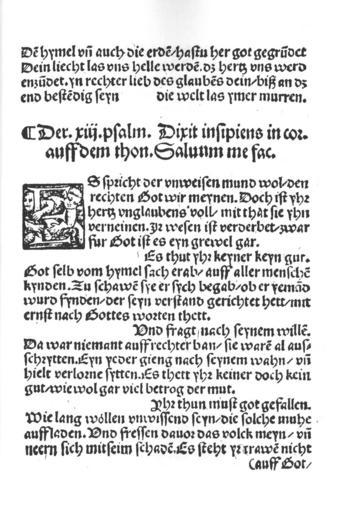 Dẽ hymel vñ auch die erdẽ/hastu her got gegrũdet
Dein liecht las vns helle werdẽ. dʒ hertʒ vns werd
enʒũdet. yn rechter lieb des glaubẽs dein/biß an dʒ
end bestẽdig seyn die welt las ymer murren.
¶ Der. xiij. psalm. Dixit insipiens in cor.
auff dem thon. Saluum me fac.
ES spricht der vnweisen mund wol/den
rechten Got wir meynen. Doch ist yhr
hertʒ vnglaubens voll/ mit that sie yhn
verneinen. Jr wesen ist verderbet/ʒwar
fur Got ist es eyn grewel gar.
Es thut yhr keyner keyn gut.
Got selb vom hymel sach erab/ auff aller menschẽ
kynden. Zu schawẽ sye er sych begab/ob er yemãd
wurd fynden/der seyn verstand gerichtet hett/mit
ernst nach Gottes worten thett.
Vnd fragt nach seynem willẽ.
Da war niemant auff rechter ban/ sie warẽ al aus-
schrytten. Eyn yeder gieng nach seynem wahn/ vñ
hielt verlorne sytten. Es thett yhr keiner doch kein
gut/wie wol gar viel betrog der mut.
Yhr thun must got gefallen.
Wie lang wöllen vnwissend seyn/die solche muhe
auffladen. Vnd fressen dauor das volck meyn/ vñ
neern sich mit seim schadẽ. Es steht yr trawẽ nicht
(auff Got/